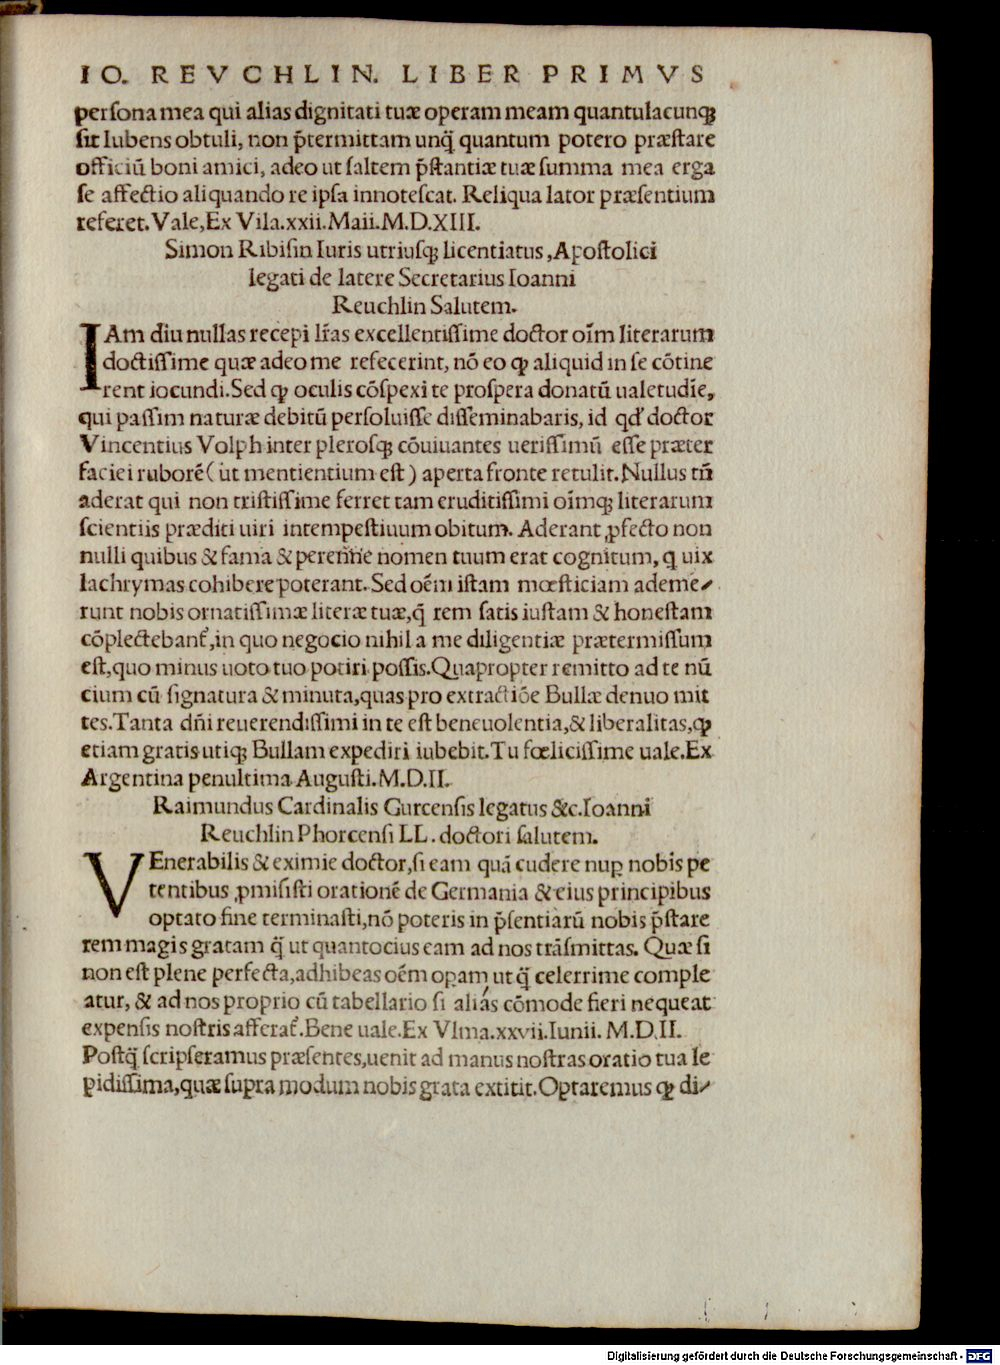 IO. REVCHLIN. LIBER PRIMVS
persona mea qui alias dignitati tuæ operam meam quantulacunqꝫ
sit lubens obtuli, non p̃termittam unq̃ quantum potero præstare
officiū boni amici, adeo ut saltem p̃stantiæ tuæ summa mea erga
se affectio aliquando re ipsa innotescat. Reliqua lator præsentium
referet. Vale, Ex Vila.xxii.Maii.M.D.XIII.
Simon Ribisin Iuris utriusqꝫ licentiatus, Apostolici
legati de latere Secretarius Ioanni
Reuchlin Salutem.
IAm diu nullas recepi lr̃as excellentissime doctor oīm literarum
doctissime quæ adeo me refecerint, nō eo ꝙ aliquid in se cōtine
rent iocundi. Sed ꝙ oculis cōspexi te prospera donatū ualetudīe,
qui passim naturæ debitū persoluisse disseminabaris, id qđ doctor
Vincentius Volph inter plerosqꝫ cōuiuantes uerissimū esse præter
faciei ruborē (ut mentientium est) aperta fronte retulit. Nullus tñ
aderat qui non tristissime ferret tam eruditissimi oīmqꝫ literarum
scientiis præditi uiri intempestiuum obitum. Aderant ꝓfecto non
nulli quibus & fama & perenne nomen tuum erat cognitum, q uix
lachrymas cohibere poterant. Sed oēm istam mœsticiam ademe⸗
runt nobis ornatissimæ literæ tuæ, q̃ rem satis iustam & honestam
cōplectebant᷑, in quo negocio nihil a me diligentiæ prætermissum
est, quo minus uoto tuo potiri possis. Quapropter remitto ad te nū
cium cū signatura & minuta, quas pro extractiōe Bullæ denuo mit
tes. Tanta dñi reuerendissimi in te est beneuolentia, & liberalitas, ꝙ
etiam gratis utiqꝫ Bullam expediri iubebit. Tu fœlicissime uale. Ex
Argentina penultima Augusti. M.D.II.
Raimundus Cardinalis Gurcensis legatus &c. Ioanni
Reuchlin Phorcensi LL. doctori salutem.
VEnerabilis & eximie doctor, si eam quā cudere nuꝑ nobis pe
tentibus ꝓmisisti orationē de Germania & eius principibus
optato fine terminasti, nō poteris in p̃sentiarū nobis p̃stare
rem magis gratam q̃ ut quantocius eam ad nos trāsmittas. Quæ si
non est plene perfecta, adhibeas oēm oꝑam ut q̃ celerrime comple
atur, & ad nos proprio cū tabellario si aliás cōmode fieri nequeat
expensis nostris afferat᷑. Bene uale. Ex Vlma. xxvii. Iunii. M.D.II.
Postq̃ scripseramus præsentes, uenit ad manus nostras oratio tua le
pidissima, quæ supra modum nobis grata extitit. Optaremus ꝙ di⸗
Digitalisierung gefördert durch die Deutsche Forschungsgemeinschaft - DFG